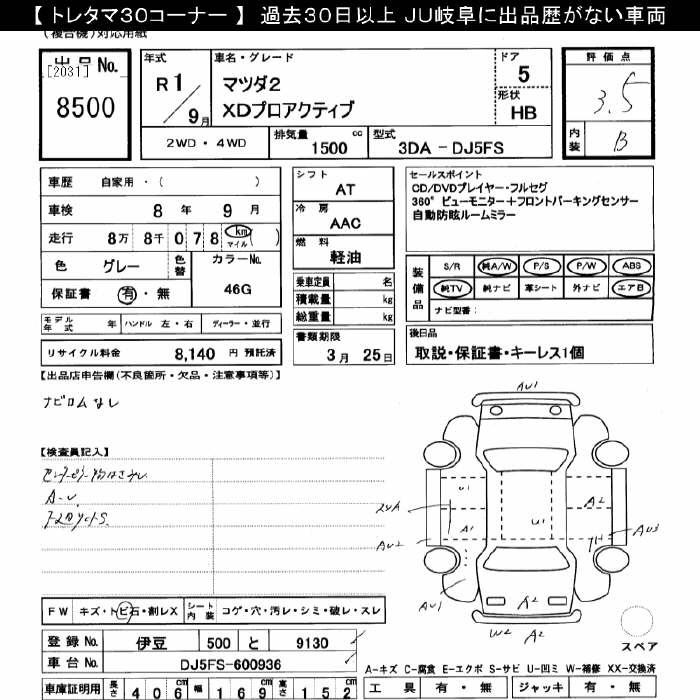 【 トレタマ30コーナー 】 過去30日以上 JU岐阜に出品歴がない車両
(複合機)対応用紙
出品No.
[2031]
8500
年式
R 1 / 9月
車名・グレード
マツダ2
XDプロアクティブ
ドア
5
形状
HB
評価点
3.5
内装
B
2WD・4WD
排気量 1500 cc
型式 3DA - DJ5FS
車歴 自家用・( )
車検 8年 9月
走行 8万 8千 0 7 8 km マイル ( )
色 グレー
色替
カラーNo.
46G
保証書 有・無
モデル年式 年
ハンドル 左・右
ディーラー・並行
リサイクル料金 8,140 円 預託済
シフト
AT
冷房
AAC
燃料
軽油
乗車定員 名
積載量 kg
総重量 kg
書類期限
3月 25日
セールスポイント
CD/DVDプレイヤー・フルセグ
360°ビューモニター+フロントパーキングセンサー
自動防眩ルームミラー
装備品
S/R 純A/W P/S P/W ABS
純TV 純ナビ 革シート 外ナビ エアB
ナビ型番:
後日品
取説・保証書・キーレス1個
【出品店申告欄(不良箇所・欠品・注意事項等)】
ナビロムなし
【検査員記入】
A-U
AU1
2UA
AU2
A1
U1
A2
AU3
AU1
A2
W2
A2
スペア
FW キズ・トビ石・割レX
シート内装 コゲ・穴・汚レ・シミ・破レ・スレ
登録No. 伊豆 500 と 9130
車台No. DJ5FS-600936
車庫証明用 長さ 406 cm 幅 169 cm 高さ 152 cm
A-キズ C-腐食 E-エクボ S-サビ U-凹ミ W-補修 XX-交換済
工具 有・無 ジャッキ 有・無